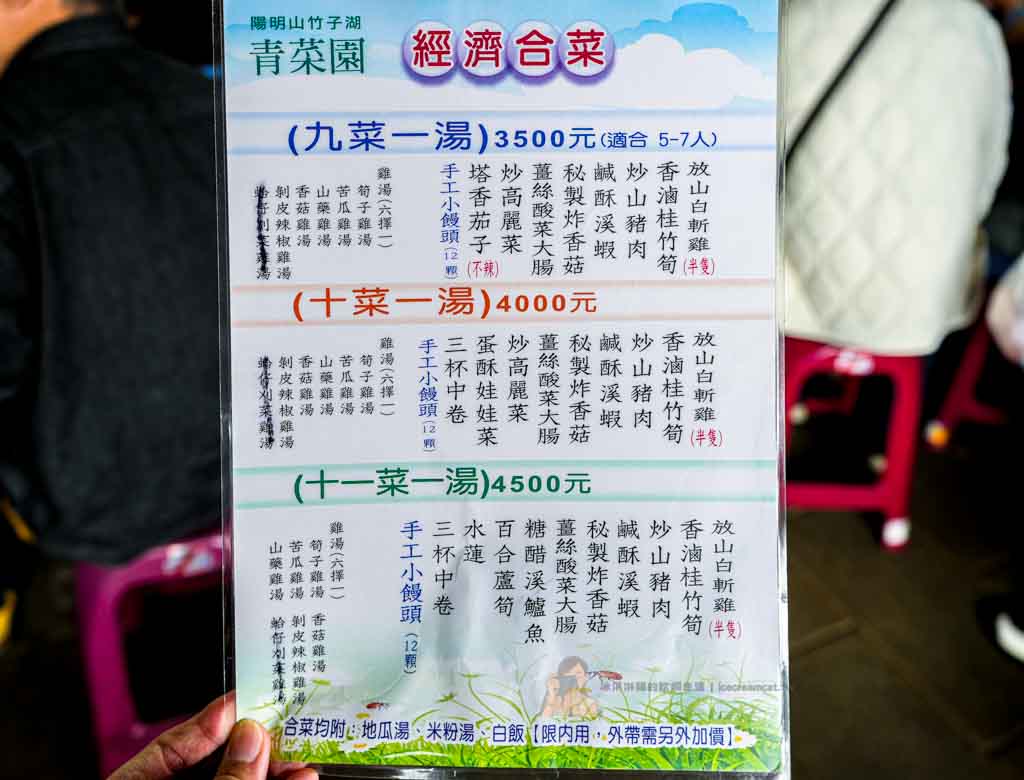 陽明山竹子湖
青菜園
經濟合菜
(九菜一湯)3500元(適合 5-7人)
放山白斬雞(半隻)
香滷桂竹筍
炒山豬肉
鹹酥溪蝦
秘製炸香菇
薑絲酸菜大腸
炒高麗菜
塔香茄子(不辣)
手工小饅頭(12顆)
雞湯(六擇一)
筍子雞湯
苦瓜雞湯
山藥雞湯
香菇雞湯
剝皮辣椒雞湯
蛤仔刈菜雞湯
(十菜一湯)4000元
放山白斬雞(半隻)
香滷桂竹筍
炒山豬肉
鹹酥溪蝦
秘製炸香菇
薑絲酸菜大腸
炒高麗菜
蛋酥娃娃菜
三杯中卷
手工小饅頭(12顆)
雞湯(六擇一)
筍子雞湯
苦瓜雞湯
山藥雞湯
香菇雞湯
剝皮辣椒雞湯
蛤仔刈菜雞湯
(十一菜一湯)4500元
放山白斬雞(半隻)
香滷桂竹筍
炒山豬肉
鹹酥溪蝦
秘製炸香菇
薑絲酸菜大腸
糖醋溪鱸魚
百合蘆筍
水蓮
三杯中卷
手工小饅頭(12顆)
雞湯(六擇一)
筍子雞湯
苦瓜雞湯
山藥雞湯
香菇雞湯
剝皮辣椒雞湯
蛤仔刈菜雞湯
合菜均附：地瓜湯、米粉湯、白飯【限內用，外帶需另外加價】